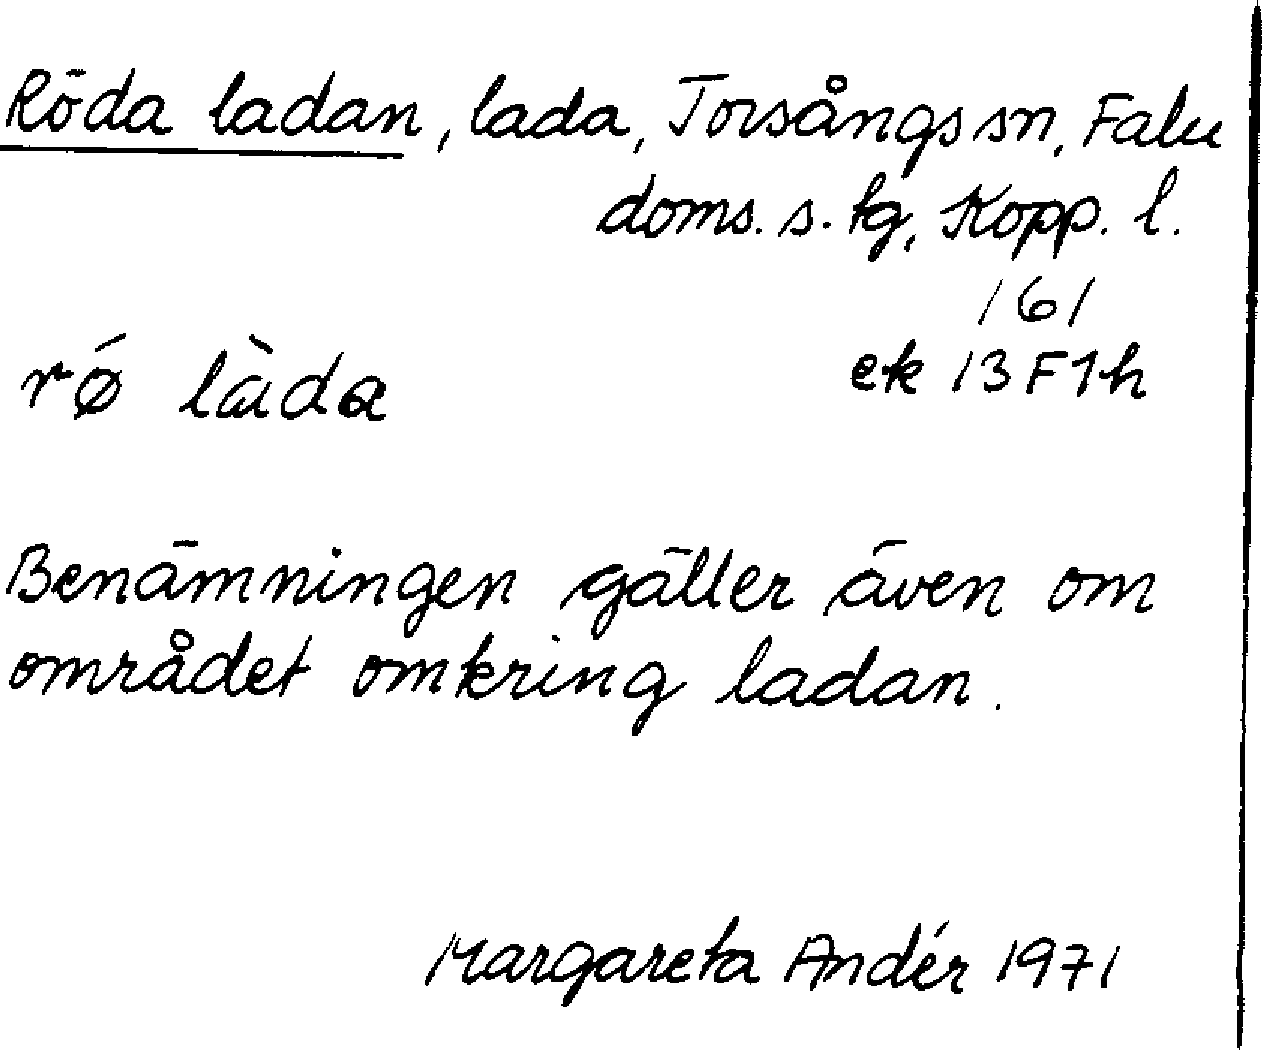 Röda ladan, lada, Torsångs sn, Falu
doms. s. tg, Kopp. l.
161
rǿ làda
ek 13F1h
Benämningen gäller även om
området omkring ladan.
Margareta Andér 1971